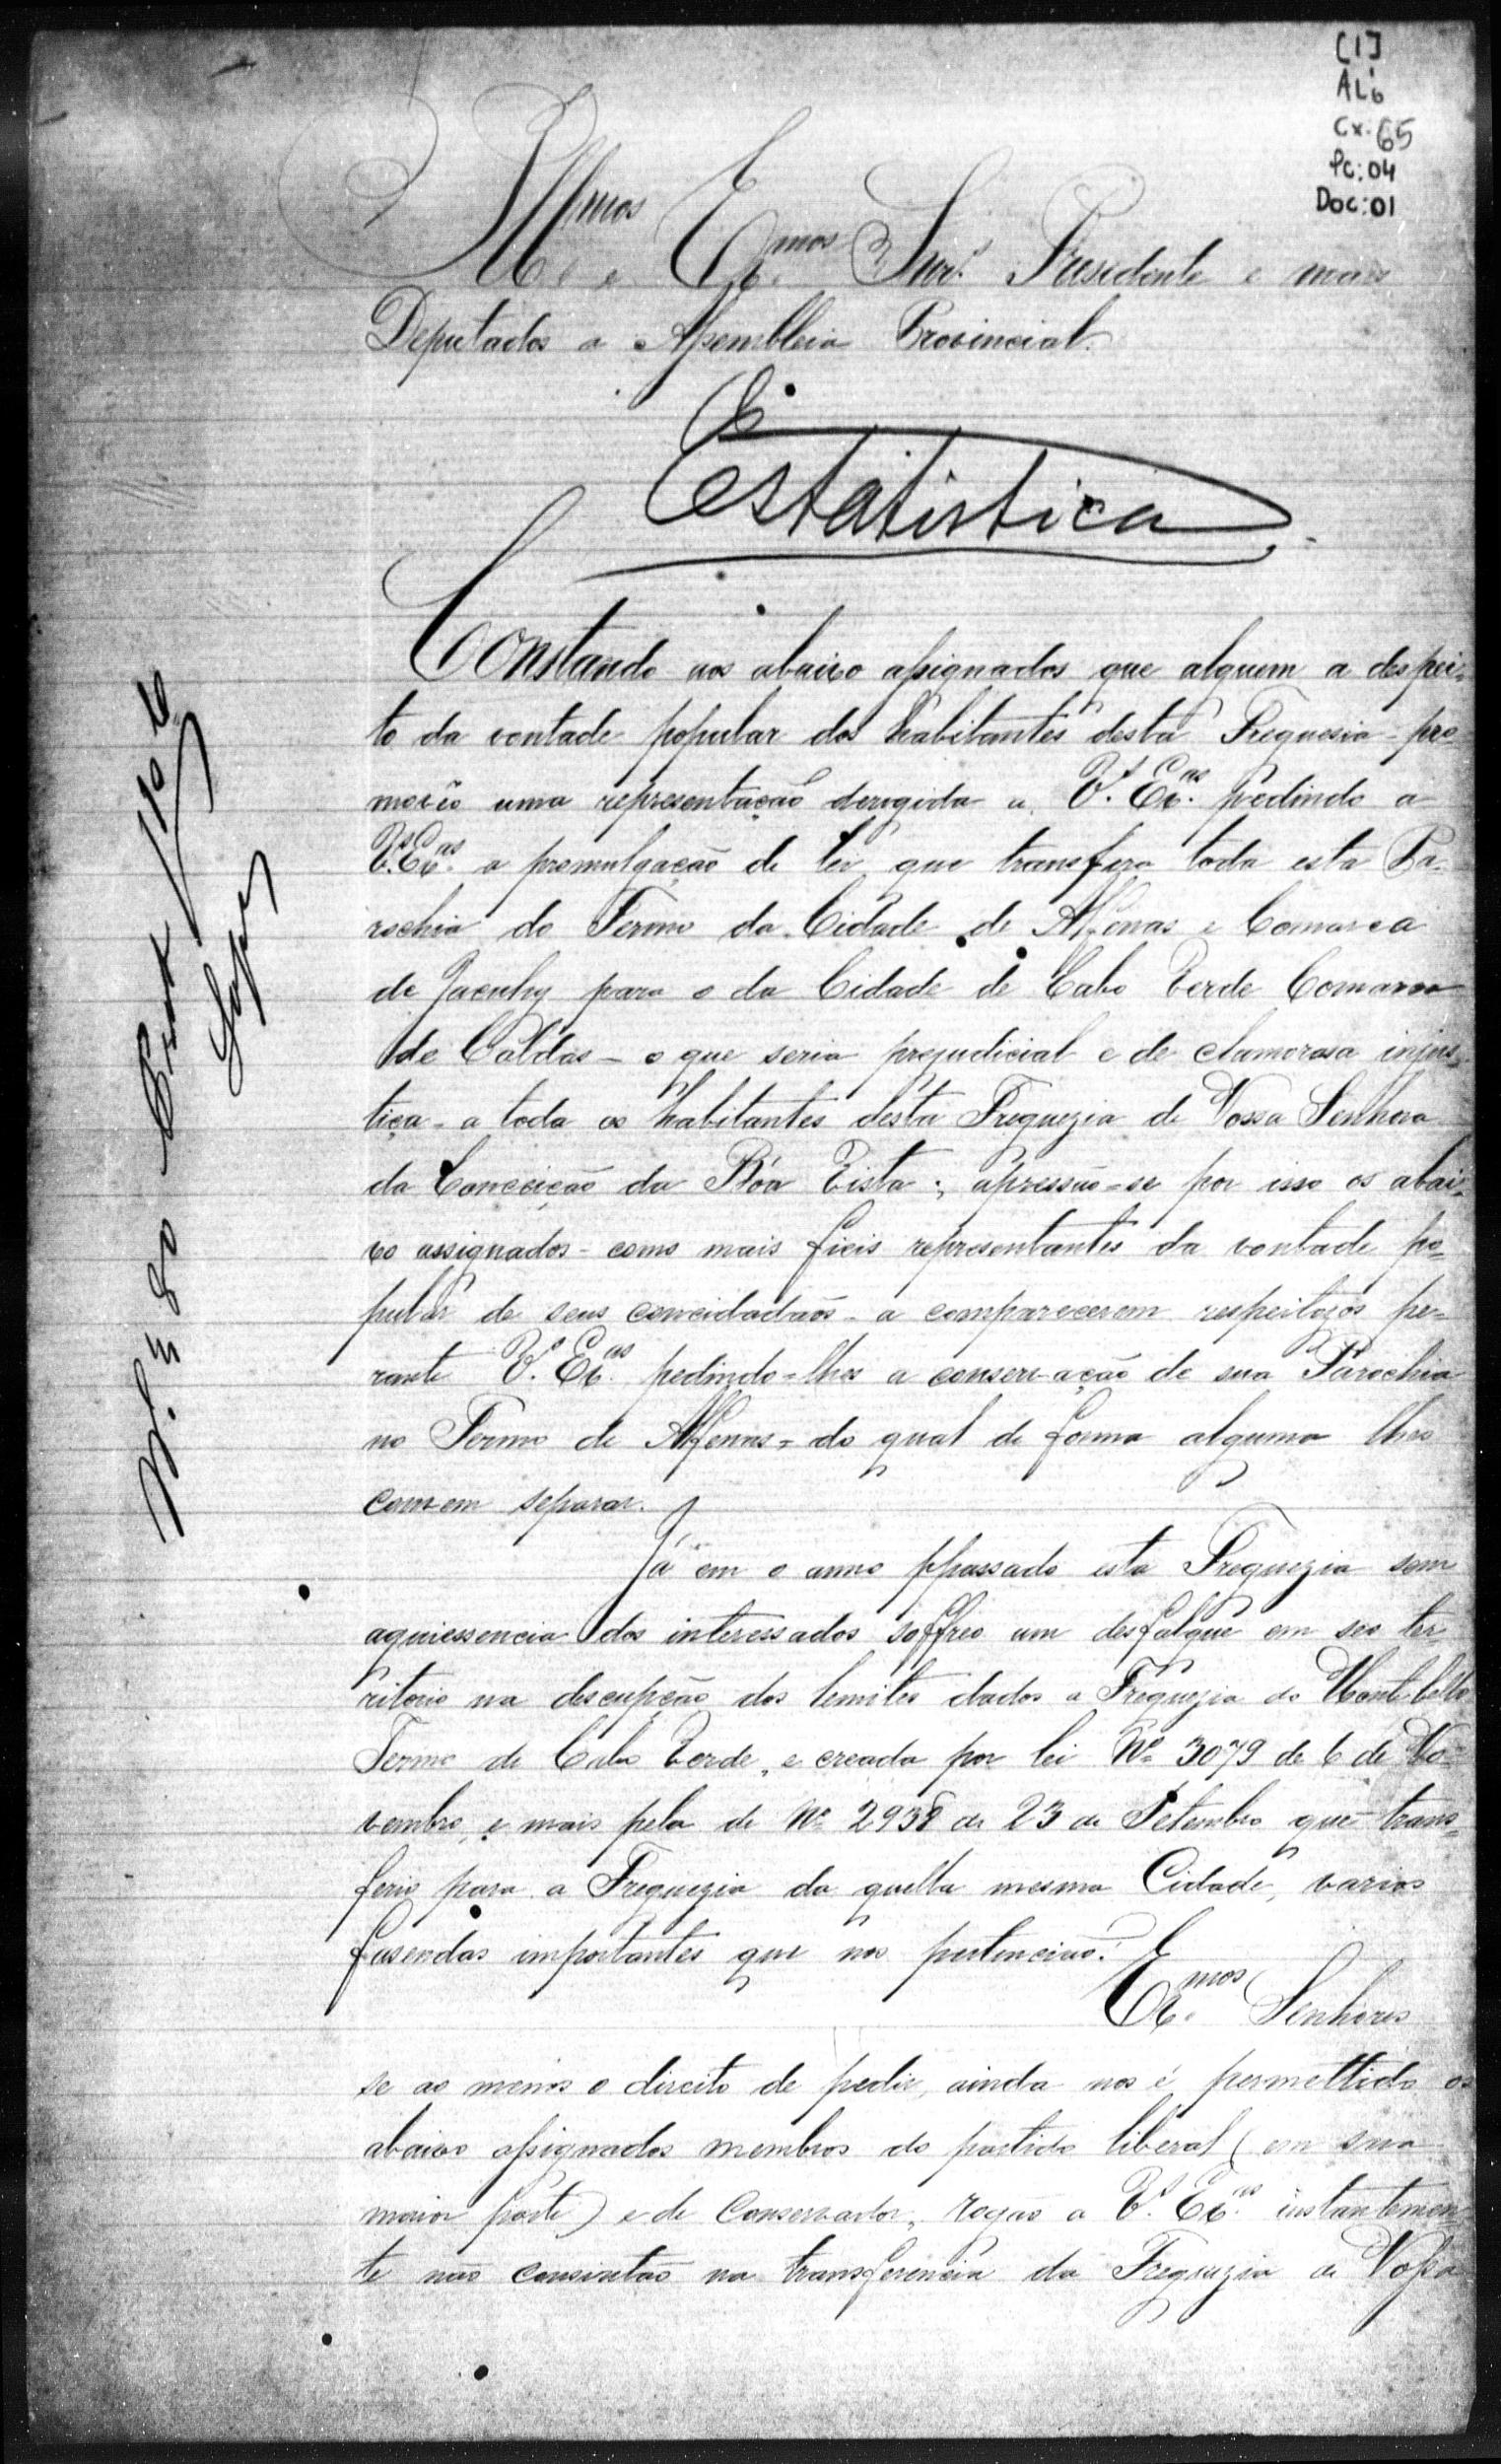 [1]
AL6
Cx. 65
Pc: 04
Doc: 01
Illmos e Exmos Snrs Presidente e mais
Deputados a Assembleia Provincial.
Estatistica
Constando aos abaixo assignados que alguem a despei-
to da vontade popular dos habitantes desta Freguesia - pro
moveo uma representação derigida a V.s Ex.as pedindo a
V.s Ex.as a promulgação de lei que transfira toda esta Pa-
rochia do Termo da Cidade de Alfenas e Comarca
de Jacuhy para o da Cidade de Cabo Verde Comarca
de Caldas - o que seria prejudicial e de clamorosa injus-
tiça - a toda os habitantes desta Freguezia de Nossa Senhora
da Conceição da Bôa Vista; apressão-se por isso os abai-
xo assignados - como mais fieis representantes da vontade po-
pular de seus concidadãos - a comparecerem respeitozos pe-
rante V.s Ex.as pedindo-lhes a conservação de sua Parochia
no Termo de Alfenas - do qual de forma alguma lhes
convem separar.
Já em o anno ppassado esta Freguezia sem
aquiessencia dos interessados soffreo um desfalque em seo ter-
ritorio na descripção dos lemites dados a Freguezia do Monte bello
Termo de Cabo Verde, e creada por lei Nº 3079 de 6 de No-
vembro, e mais pela de Nº 2938 de 23 de Setembro que trans-
ferio para a Freguezia da quella mesma Cidade, varias
fasendas importantes que nos pertencião.
Exmos Senhores
se ao menos o direito de pedir, ainda nos é permettido os
abaixo assignados membros do partido liberal (em sua
maior parte) e de Conservador, rogão a V.s Ex.as instantemen
te não consintão na transferencia da Freguezia de Nossa
Nº 580
Lopes